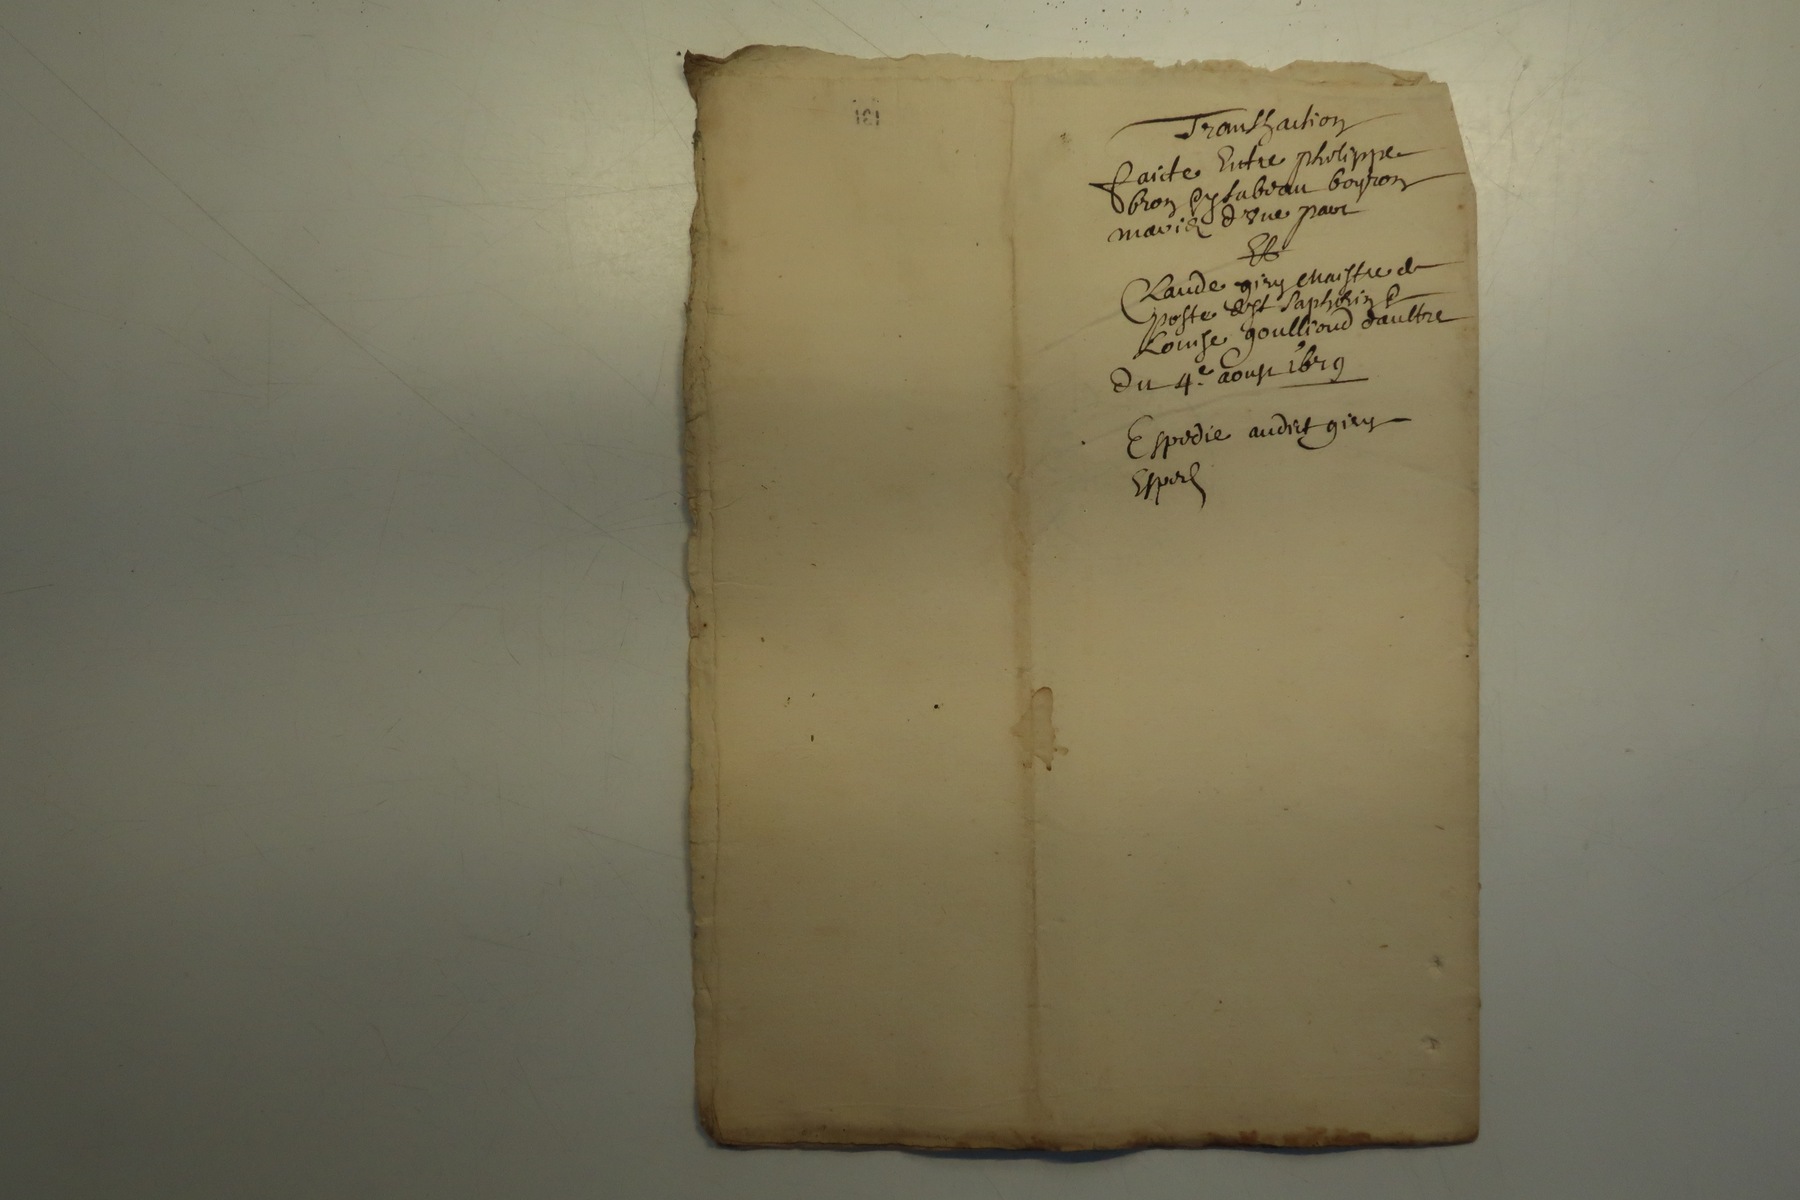 Transhaction
faicte Entre philippe
bron & ysabeau boyron
mariés d'vne part
Et
Claude giry Maistre de
poste de St saphorin &
Louise goullioud d'aultre
Du 4.e aoust 1619
Expedie audict giry
Exped